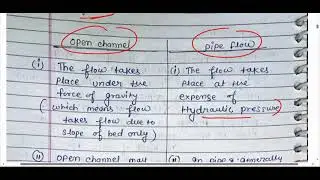 Open channel
pipe flow
(i) The flow takes
place under the
force of gravity
(which means flow
takes flow due to
slope of bed only)
(i) The flow takes
place at the
expense of
Hydraulic pressure
(ii) Open channel
(ii) In pipe generally